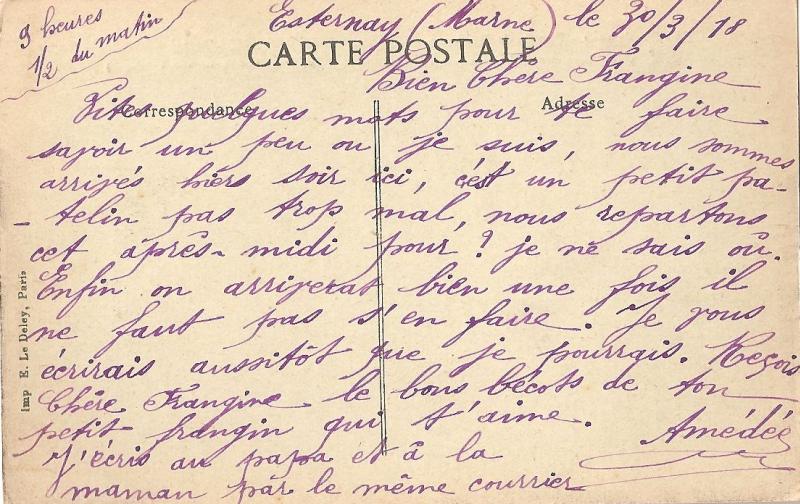 9 heures
1/2 du matin
Esternay (Marne) le 30/3/18
CARTE POSTALE
Bien Chère Frangine
Correspondance
Adresse
Vites quelques mots pour te faire
savoir un peu ou je suis, nous sommes
arrivés hiers soir ici, c'est un petit pa-
-telin pas trop mal, nous repartons
cet après-midi pour? je ne sais où.
Enfin on arriverat bien une fois il
ne faut pas s'en faire. Je vous
écrirais aussitôt que je pourrais. Reçois
Chère Frangine le bons bécots de ton
petit frangin qui t'aime. Amédée
J'écris au papa et à la
maman par le même courrier
Imp E. Le Deley, Paris